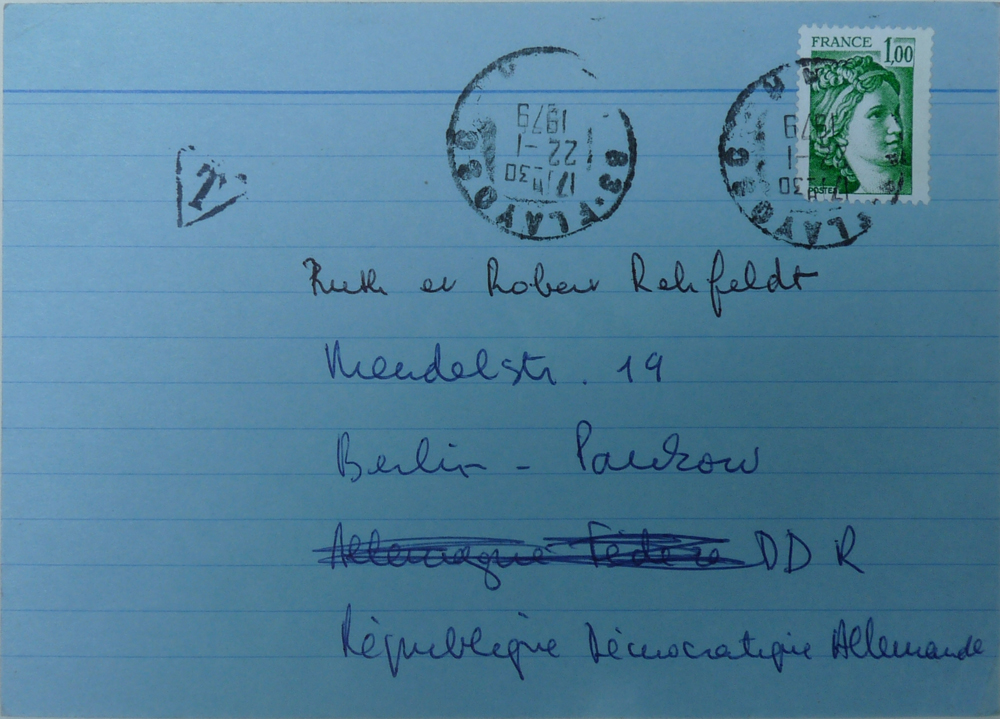 FRANCE 1,00
POSTES
83. FLAYOSC
17 H 30
22-1
1979
83. FLAYOSC
17 H 30
-1
1979
T
Ruth et Robert Rehfeldt
Mendelstr. 19
Berlin - Pankow
Allemagne Fédéra DDR
République Démocratique Allemande